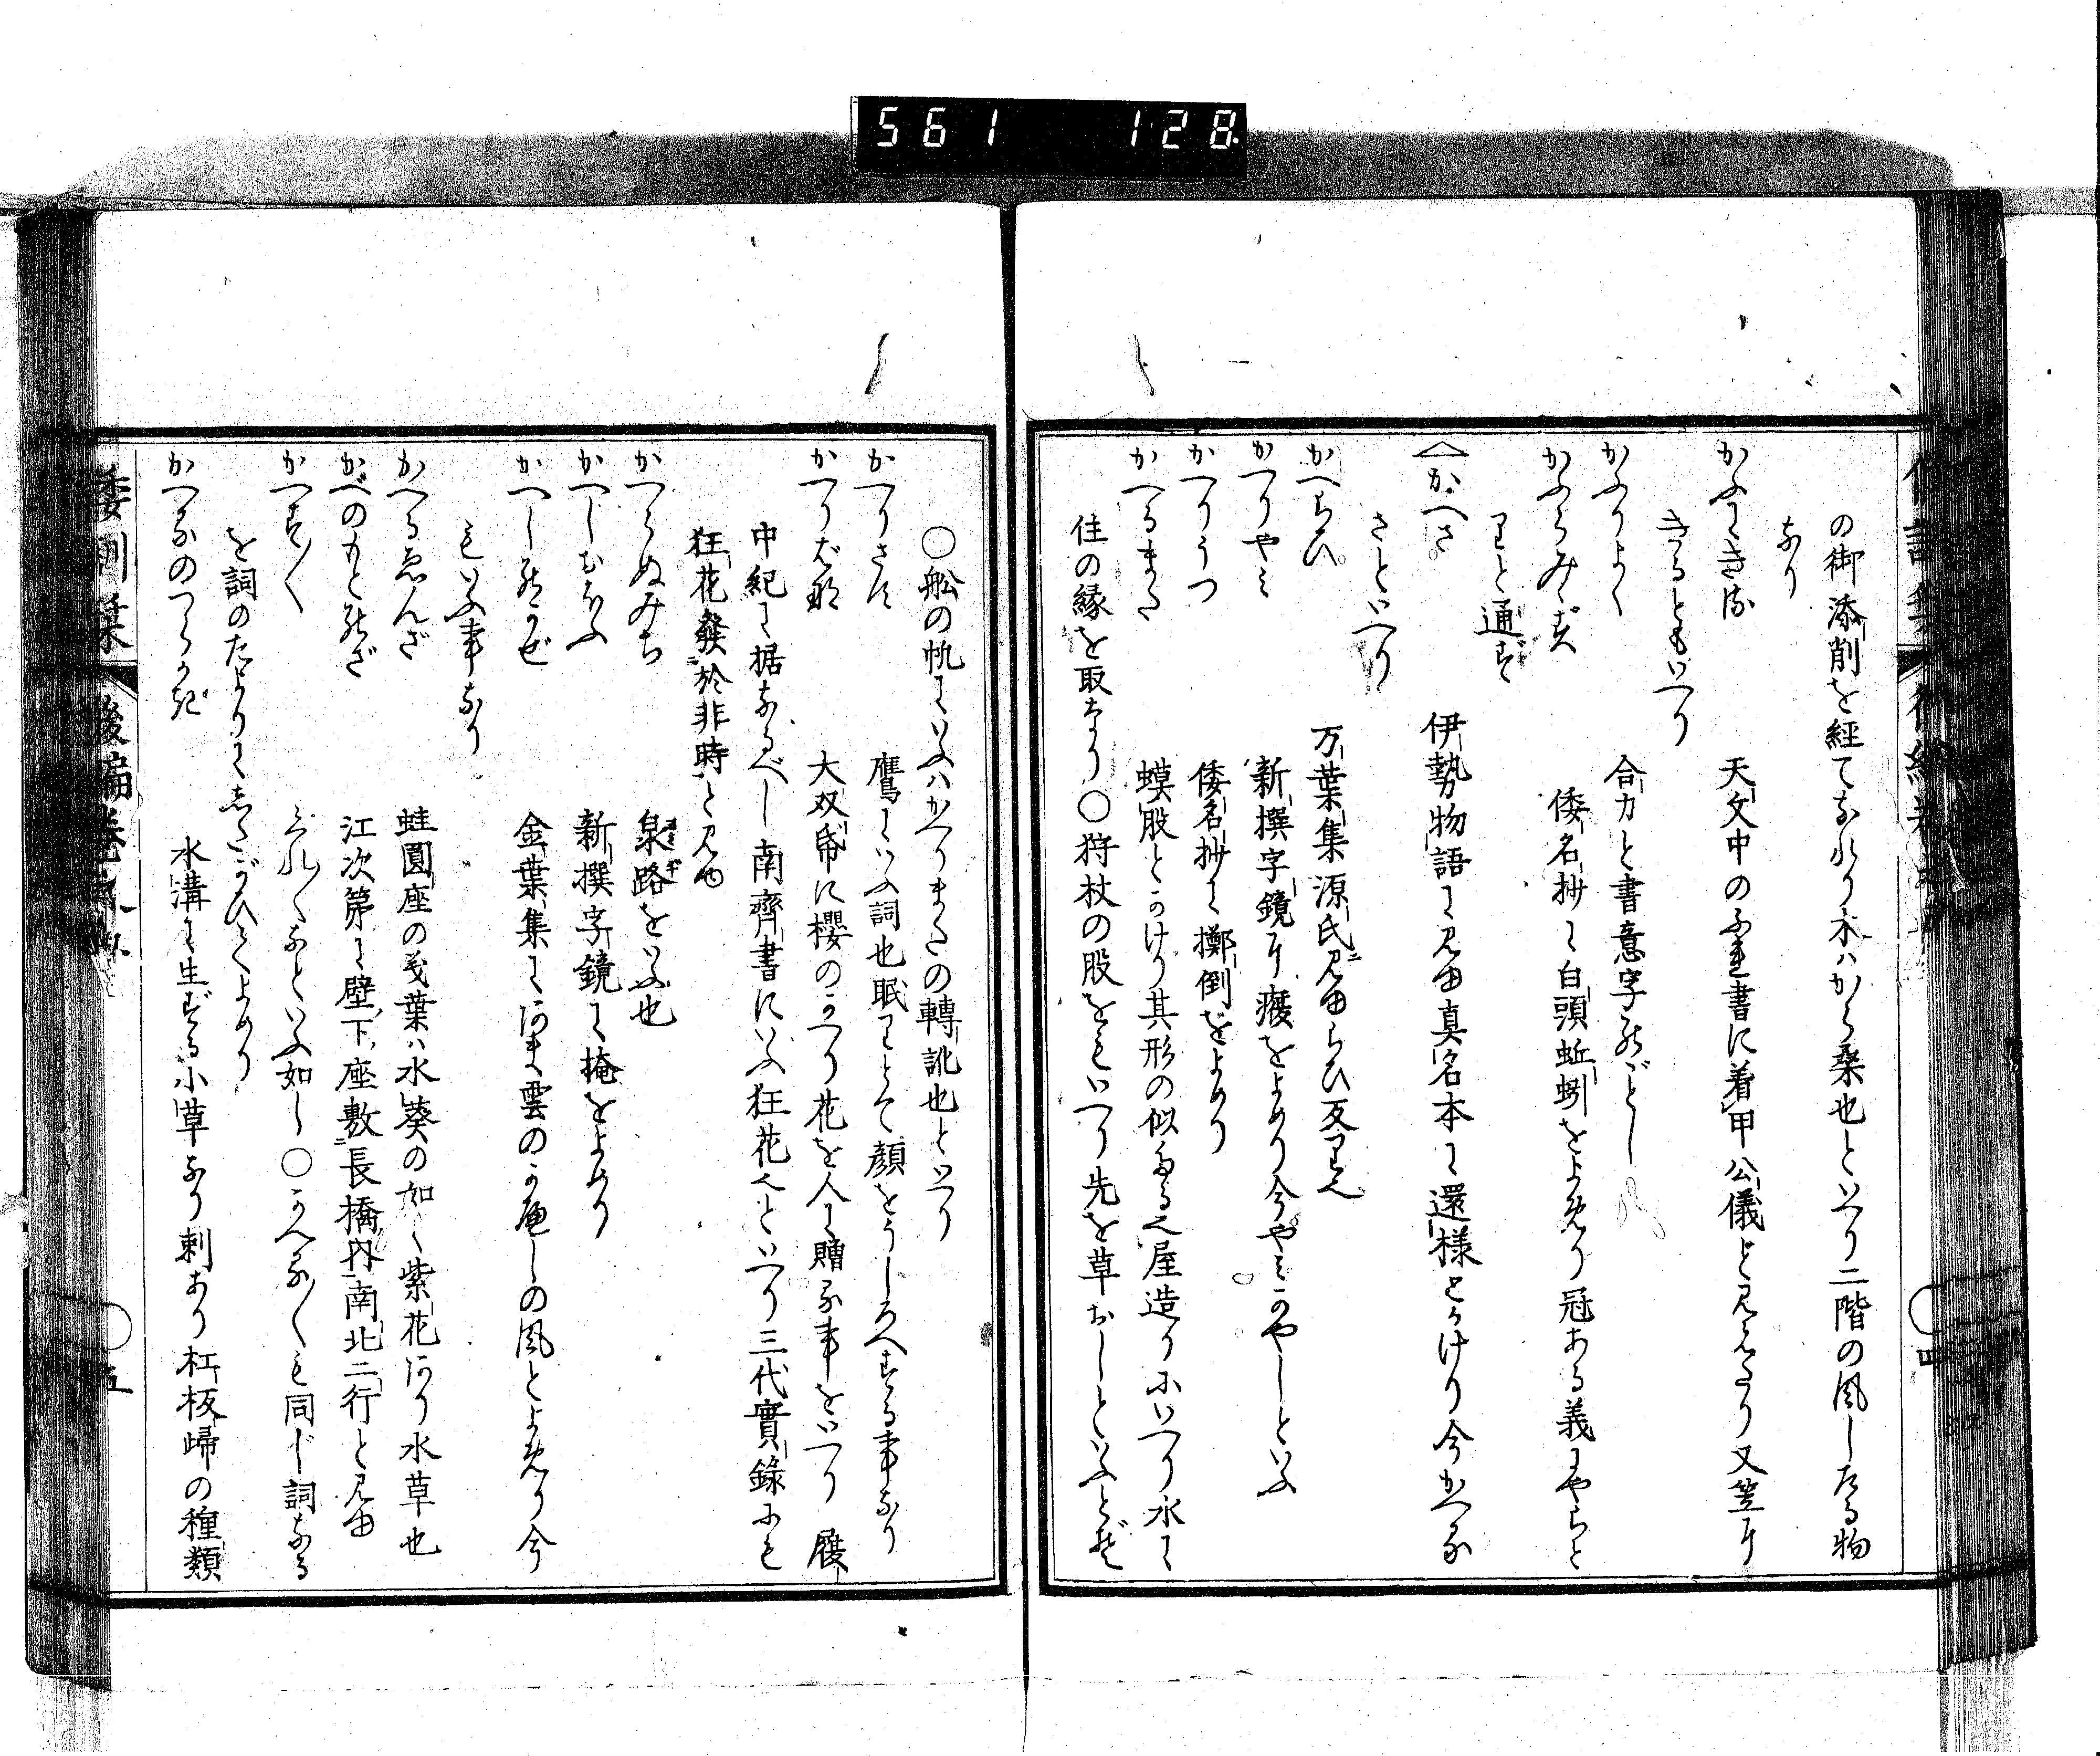 561 128
の御添削を経てなれり本ハから桑也といへり二階の風したる物
なり
かふときる 天文中のふれ書に着甲公儀と見えたり又笠に
きるともいへり
かふりよく 合力と書意字のごとし
かふらみゝず 倭名抄に白頭蚯蚓をよめり冠ある義にやちと
りと通ず
へかへさ 伊勢物語に見ゆ真名本に還様とかけり今かへる
さといへり
かへらひ 万葉集源氏ニ見ゆらひ反り也
かへりやミ 新撰字鏡に癁をよめり今やミかやしといふ
かへりうつ 倭名抄に擲倒をよめり
かへるまた 蟆股とかけり其形の似たる也屋造りにいへり水に
住の縁を取なり〇狩杖の股をもいへり先を草おしといふとぞ
〇舩の帆にいふハかへりまたの轉訛也といへり
かへりさす 鷹にいふ詞也眠りとて顔をうしろへする事なり
かへりばな 大双帋に櫻のかへり花を人に贈る事をいへり 履
中紀に据なるべし南齊書にいふ狂花也といへり三代實錄にも
狂花發於非時と見ゆ
かへらぬみち 泉路をいふ也
かへしおほふ 新撰字鏡に掩をよめり
かへしのかぜ 金葉集にあま雲のかへしの風とよめり今
もいふ事なり
かへるゑんざ 蛙圓座の義葉ハ水葵の如く紫花あり水草也
かべのもとのざ 江次第に壁下座敷長橋内南北二行と見ゆ
かへす〲 くれ〲なといふ如し〇かへる〲も同じ詞なる
を詞のたよりにしたがひてよめり
かへるのつらかき 水溝に生ずる小草なり刺あり杠板歸の種類
倭訓栞 後編巻 五